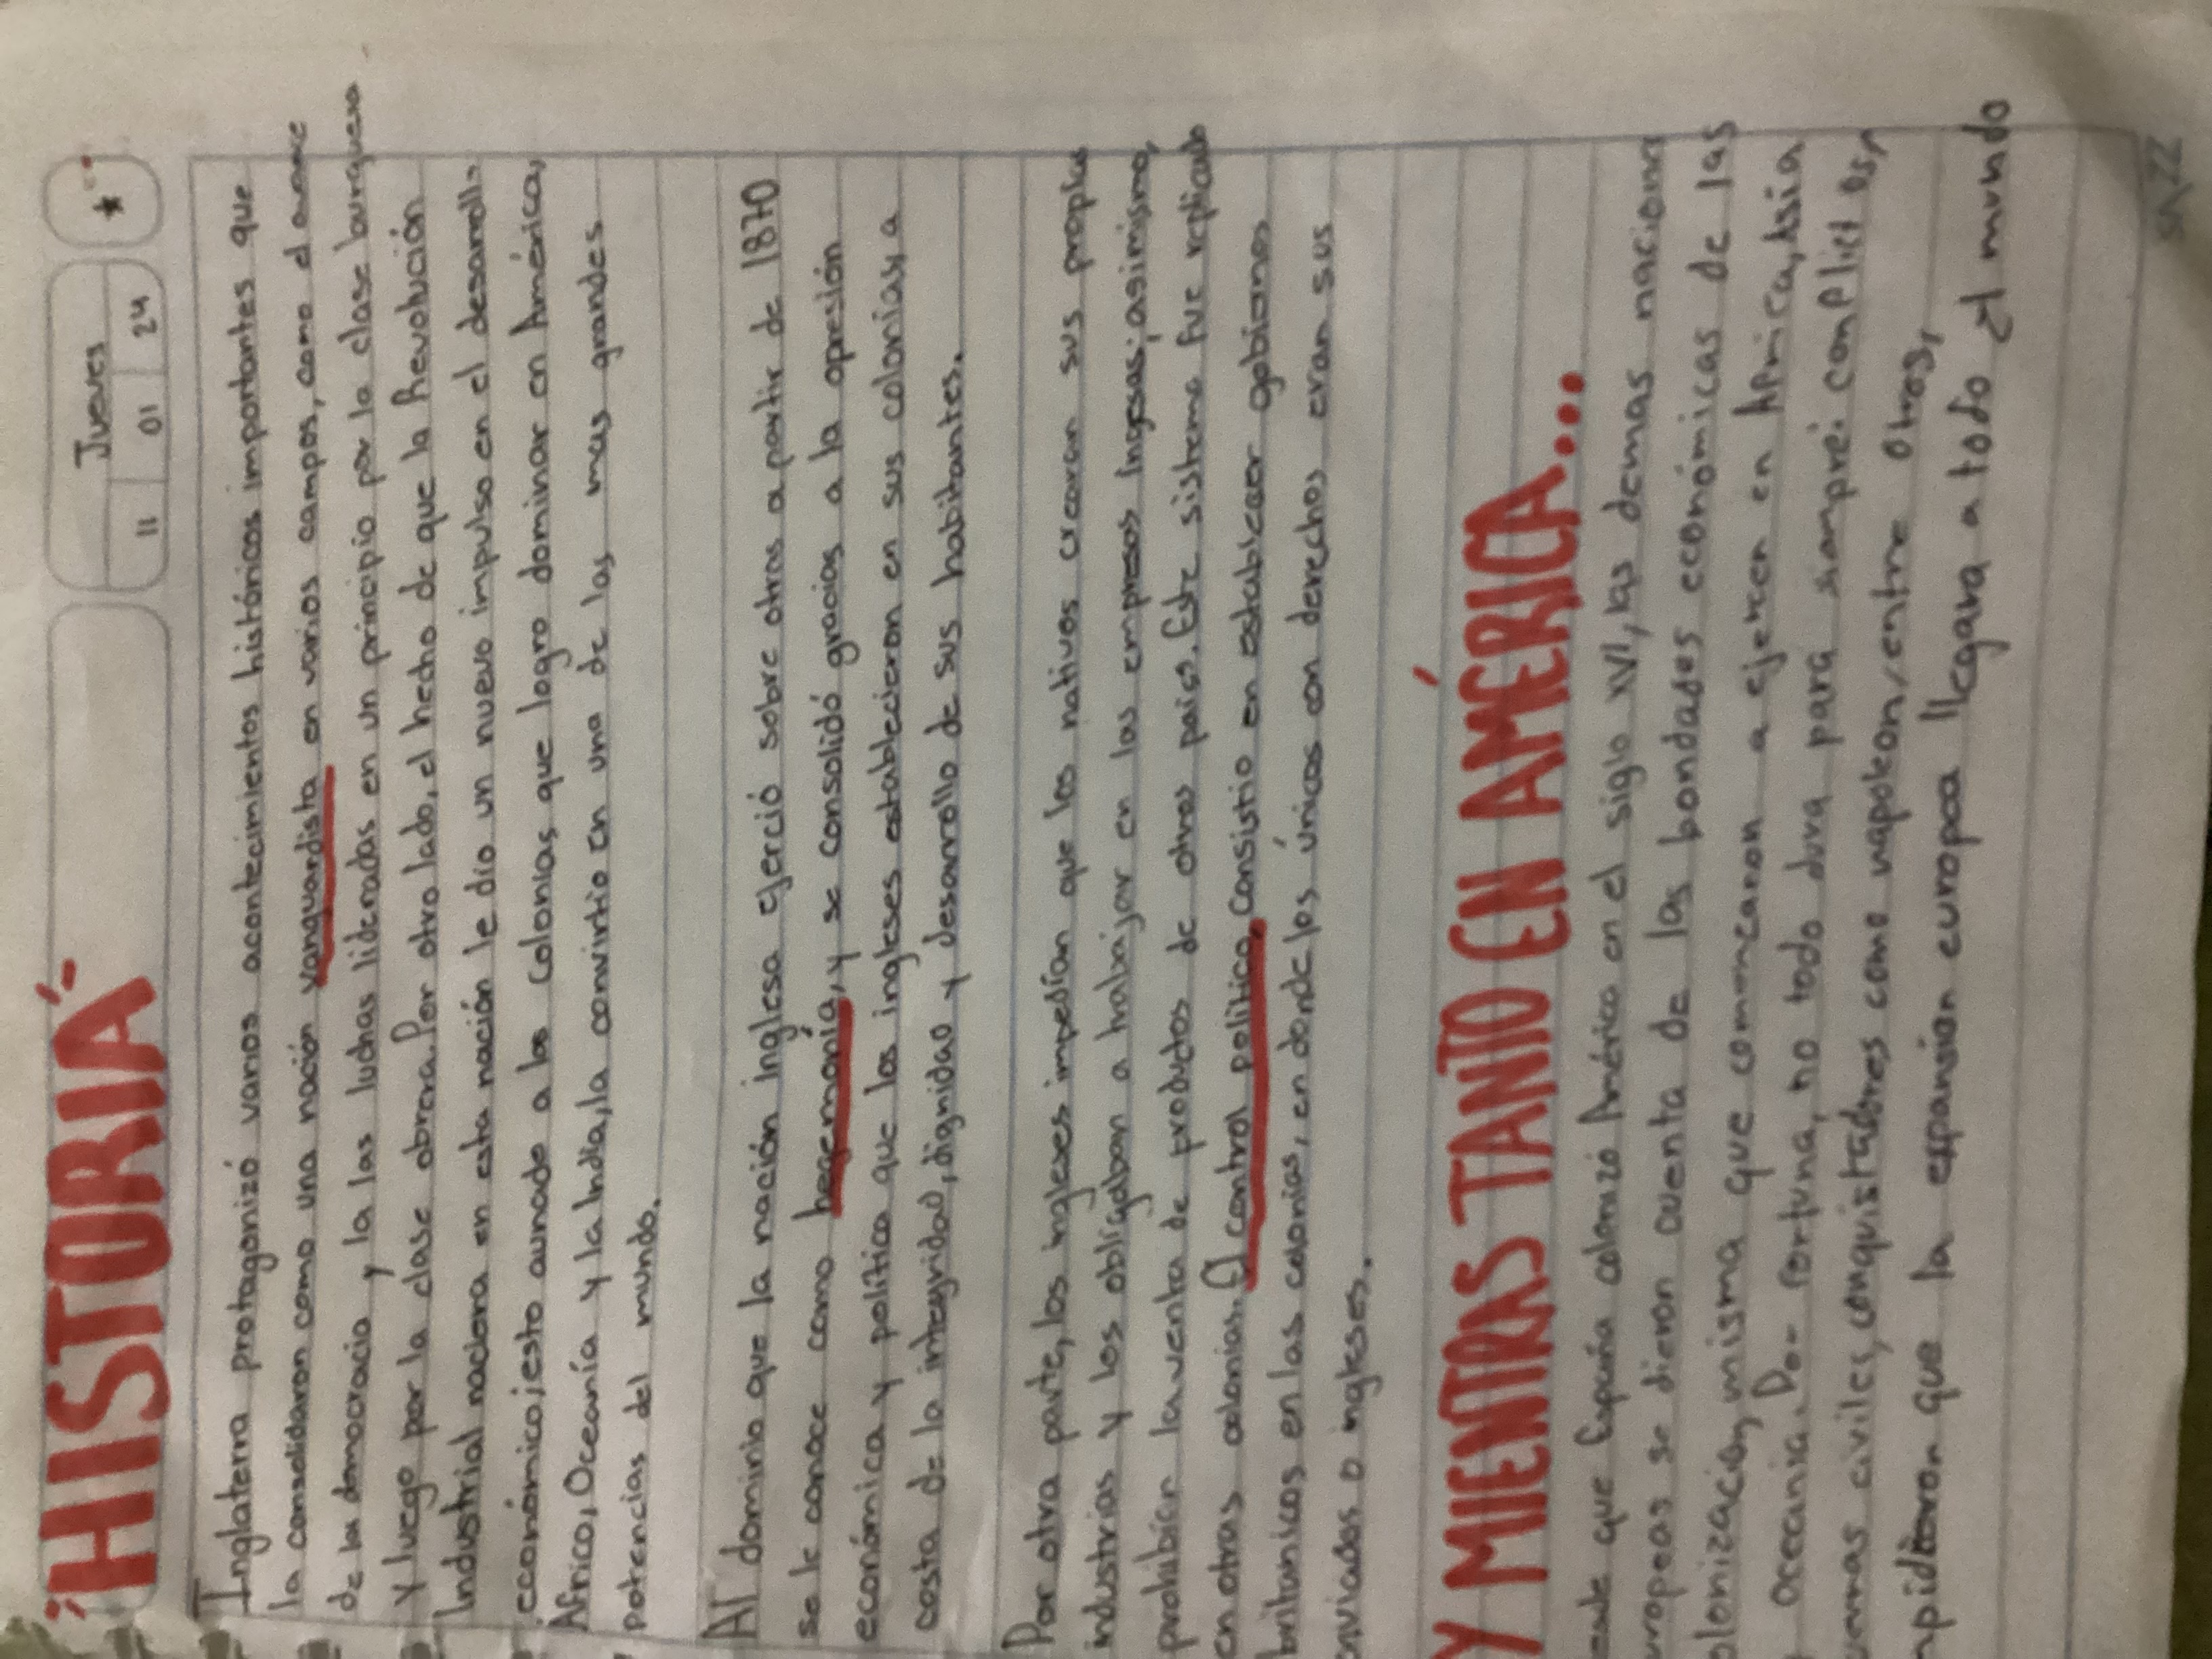 ¡HISTORIA!
Jueves
11 01 24
Inglaterra protagonizó varios acontecimientos históricos importantes que
la consolidaron como una nación vanguardista en varios campos, como el
de la democracia y la las luchas lideradas en un principio por la clase burguesa
y luego por la clase obrera. Por otro lado, el hecho de que la Revolución
Industrial naciera en esta nación le dio un nuevo impulso en el desarrollo
económico; esto aunado a las colonias que logro dominar en América,
Africa, Oceanía y la India, la convirtio en una de las mas grandes
potencias del mundo.
Al dominio que la nación inglesa ejerció sobre otras a partir de 1870
se le conoce como hegemonía, y se consolidó gracias a la opresión
económica y política que los ingleses establecieron en sus colonias, a
costa de la integridad, dignidad y desarrollo de sus habitantes.
Por otra parte, los ingleses impedían que los nativos crearan sus propias
industrias y los obligaban a trabajar en las empresas ingesas; asimismo,
prohibían la venta de productos de otros paises. Este sistema fue replicado
en otras colonias. El control político. Consistio en establecer gobiernos
britanicos en las colonias, en donde los únicos con derechos eran sus
enviados o ingleses.
Y MIENTRAS TANTO EN AMÉRICA...
que España colonizó América en el siglo XVI, las demas naciones
europeas se dieron cuenta de las bondades económicas de las
colonizacion, misma que commezaron a ejercen en Africa, Asia
y oceania. Por fortuna, no todo dura para siempre: conflictos,
guerras civiles, conquistadores como napoleon, entre otros,
impidieron que la expansion europea llegara a todo el mundo